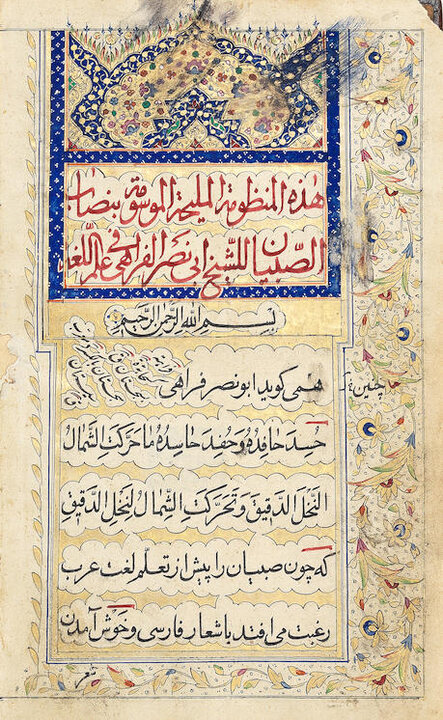 هذه المنظومة المليحة الموسومة بنصاب
الصبيان للشيخ ابى نصر الفراهى فى علم اللغه
بسم الله الرحمن الرحيم
چنين
همى كويد ابو نصر فراهى
حُسِدَ حافِدُهُ وَحُفِدَ حاسِدُهُ ما حَرَّكَتِ الشَّمالُ
النَّخلَ الدَّقيقَ وَتَحَرَّكَتِ الشِّمالُ لِنَخلِ الدَّقيقِ
كه چون صبيان را پيش از تعلّم لغت عرب
رغبت مى افتد باشعار فارسى و خوش آمدن